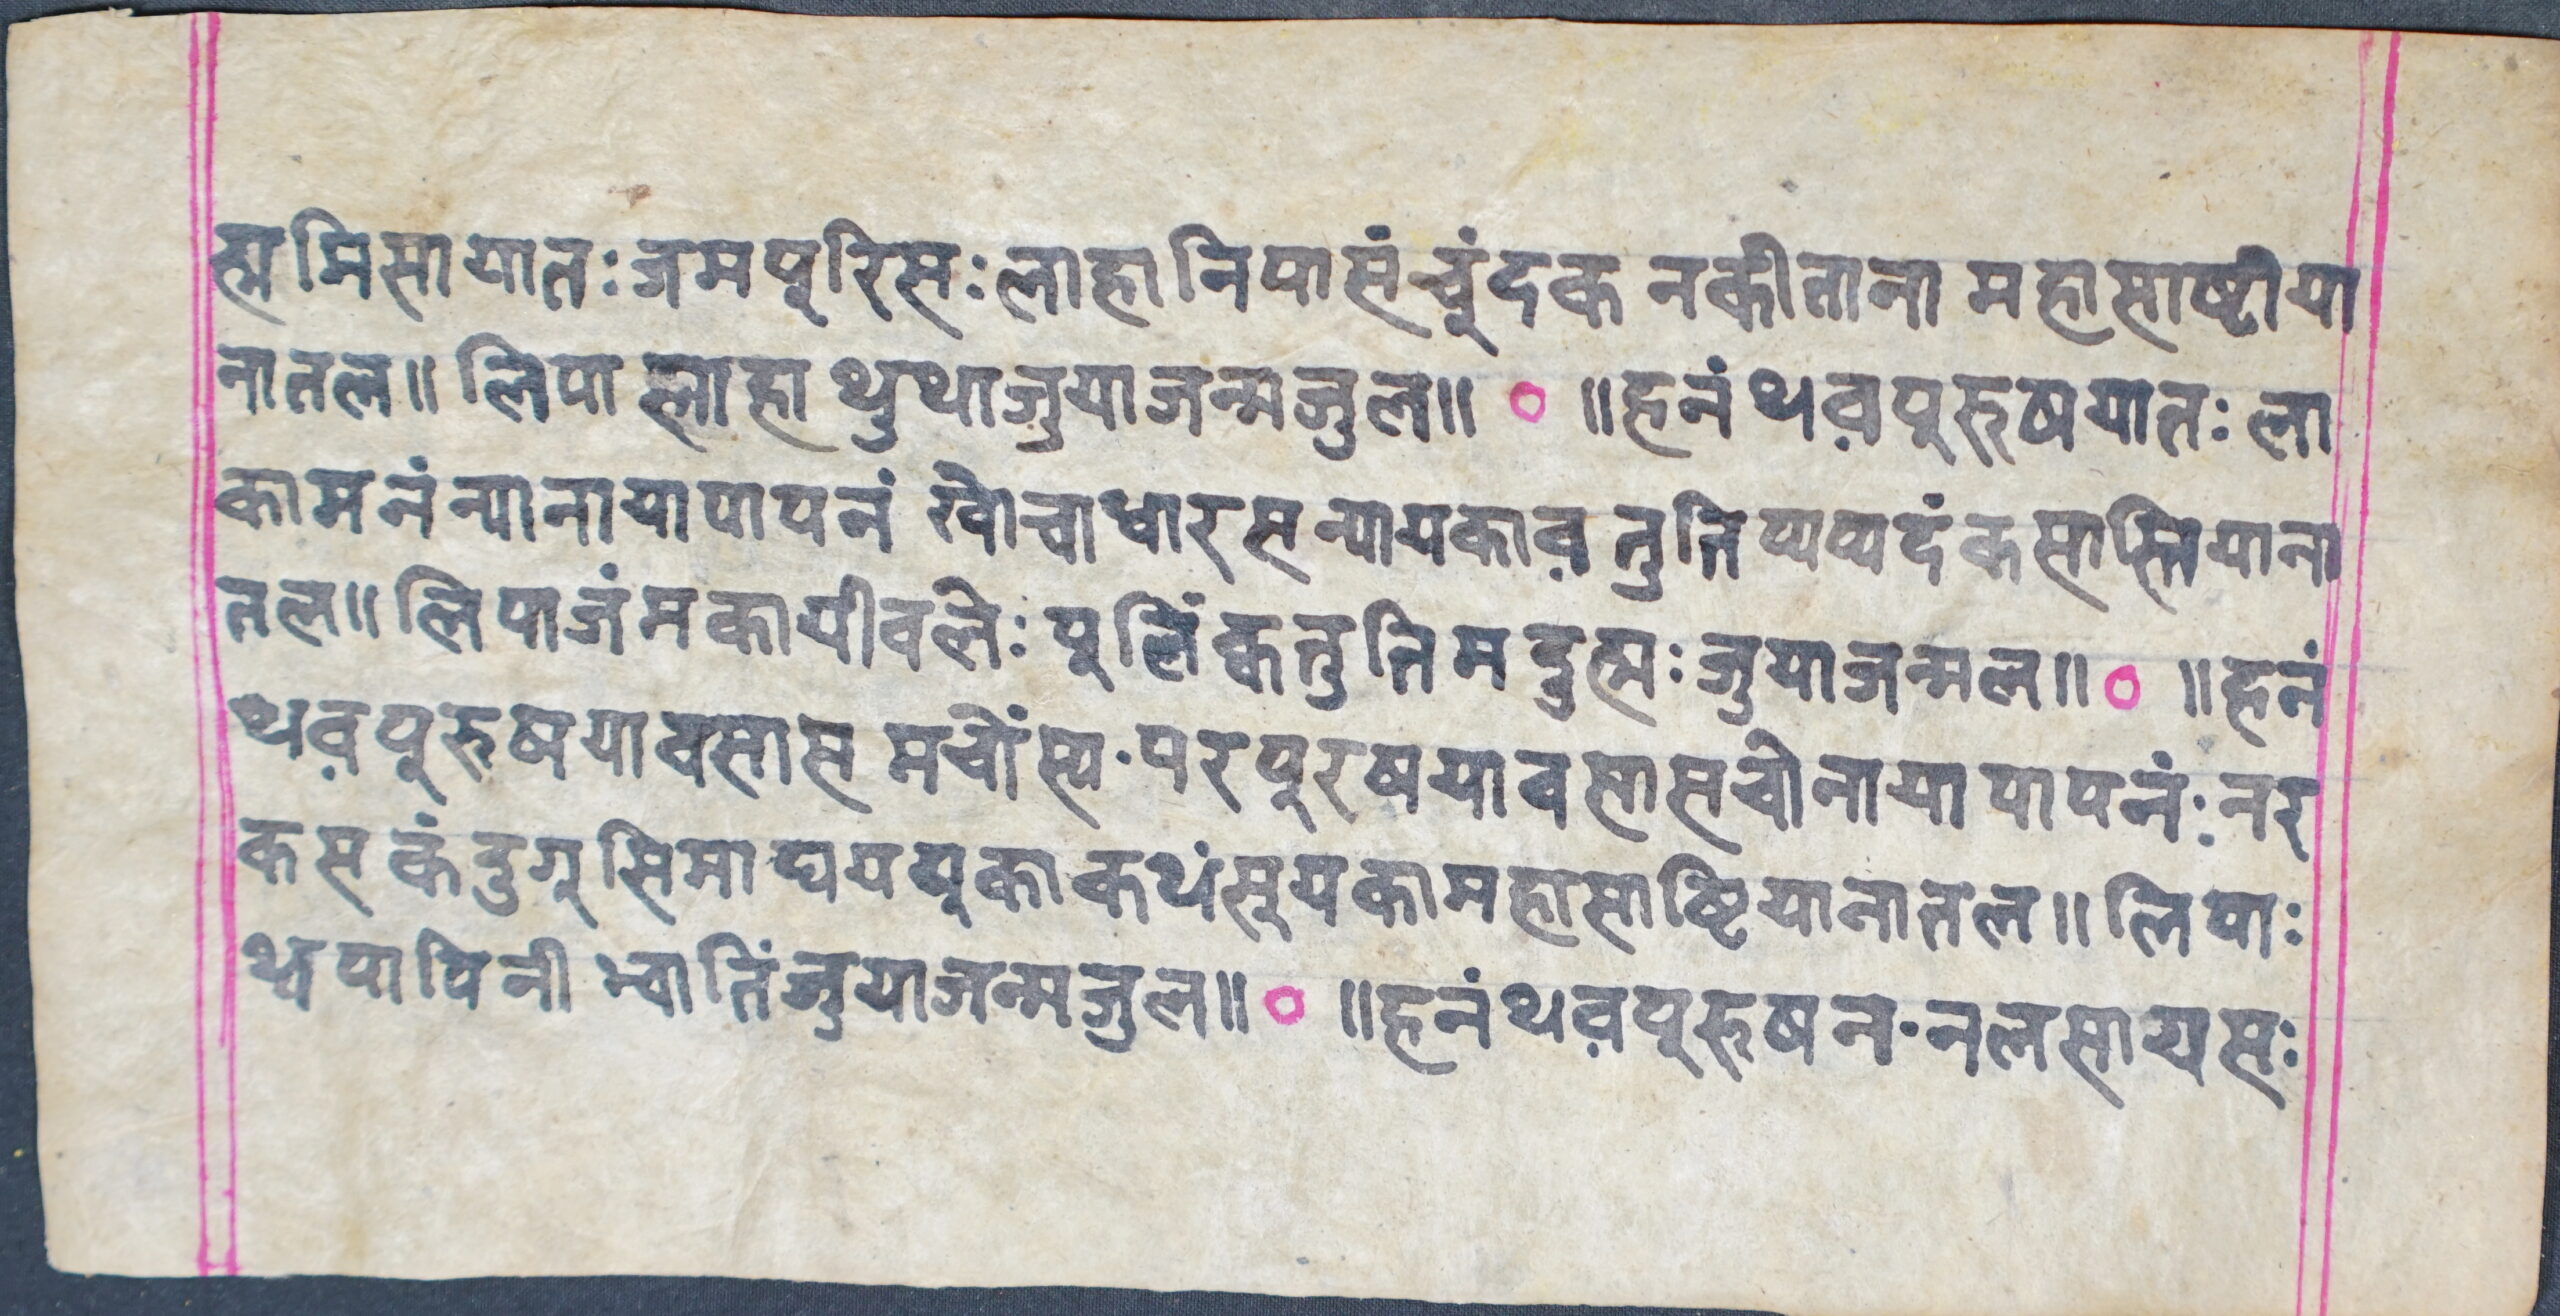 ह्म मिसायातः जमपूरिसः लाहानिपासंचूंदक नकीताना महासाष्टीया
नातल॥ लिपा ह्लाहा थुथाजुयाजन्मजुल॥ ० ॥हनंथव़पूरुषयातः ला
कामनंन्यानायापापनं खोचाधारसन्यायकाव़ तुतिप्यप्यदंकसास्तियाना
तल॥ लिपाजंमकायीवलेः पुलिंक्वतुतिमदुह्मः जुयाजन्मल॥ ० ॥हनं
थव़पूरुषयावसास मचोंस्य·परपूरषयावसासचोनायापापनं:नर
कस कंदुगूसिमाघययूकाकथंसूयकामहासाष्टियानातल॥ लिपाः
थ्वपापिनी भ्वातिंजुयाजन्मजुल॥ ० ॥हनंथव़पूरुषन·नलसायसः